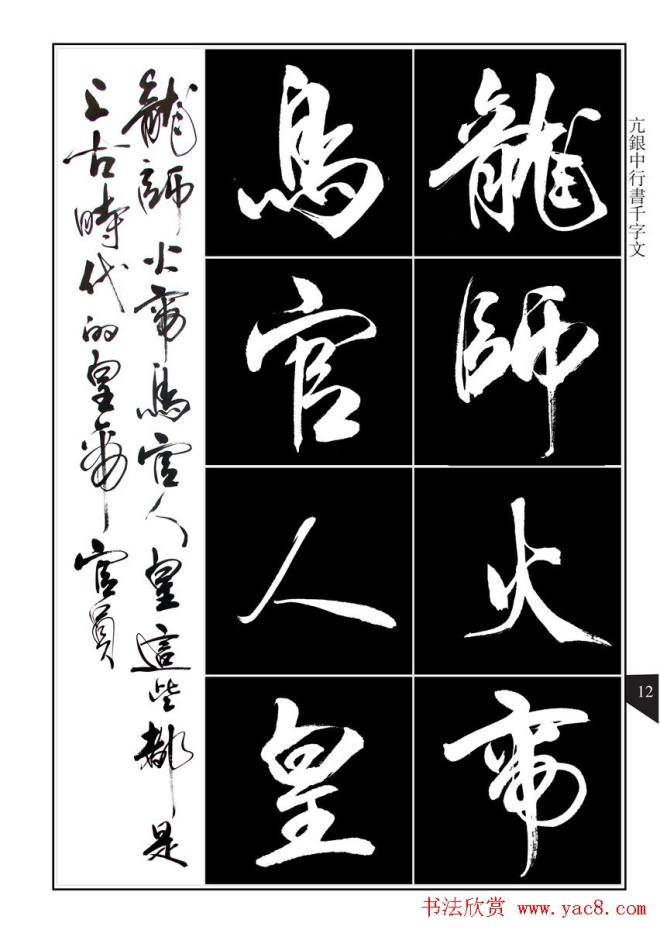 亢銀中行書千字文
龍師火帝
鳥官人皇
龍師火帝鳥官人皇這些都是
上古時代的皇帝官員
12
书法欣赏 www.yac8.com